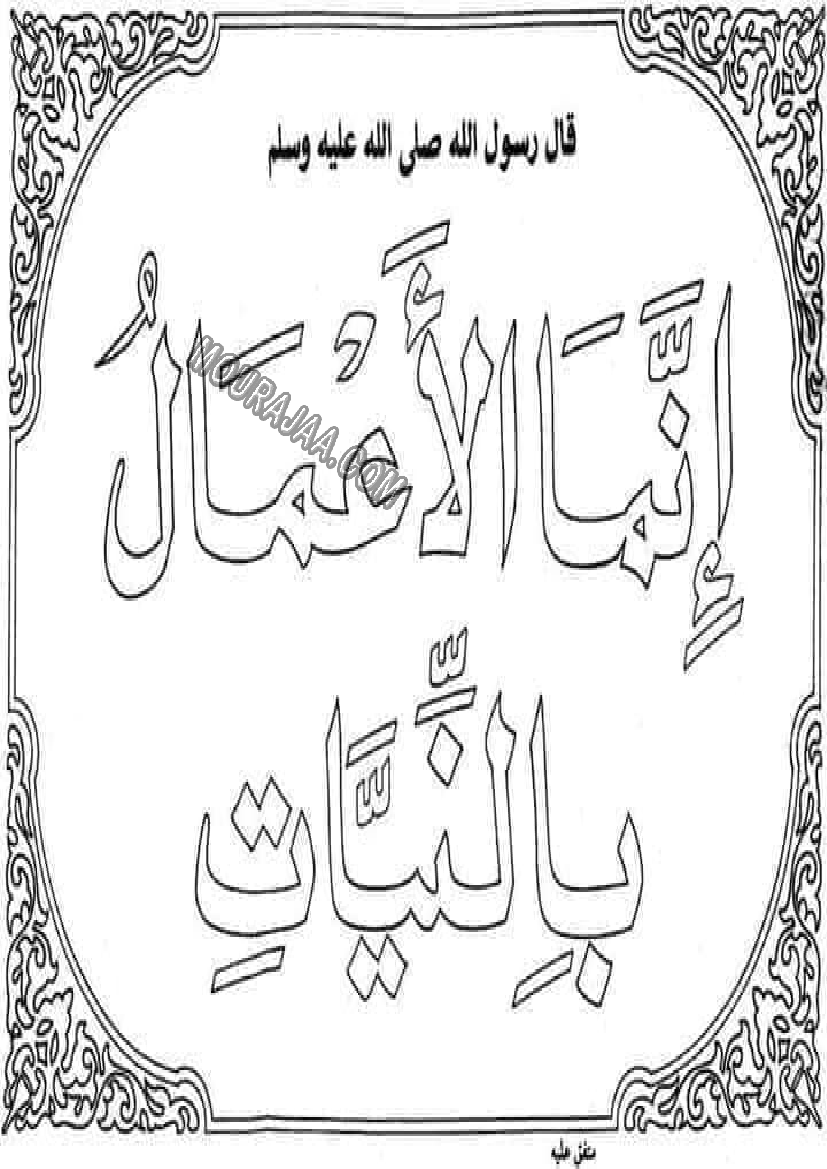 قال رسول الله صلى الله عليه وسلم
إِنَّمَا الأَعْمَالُ
MOURAJAA.COM
بِالنِّيَّاتِ
متفق عليه